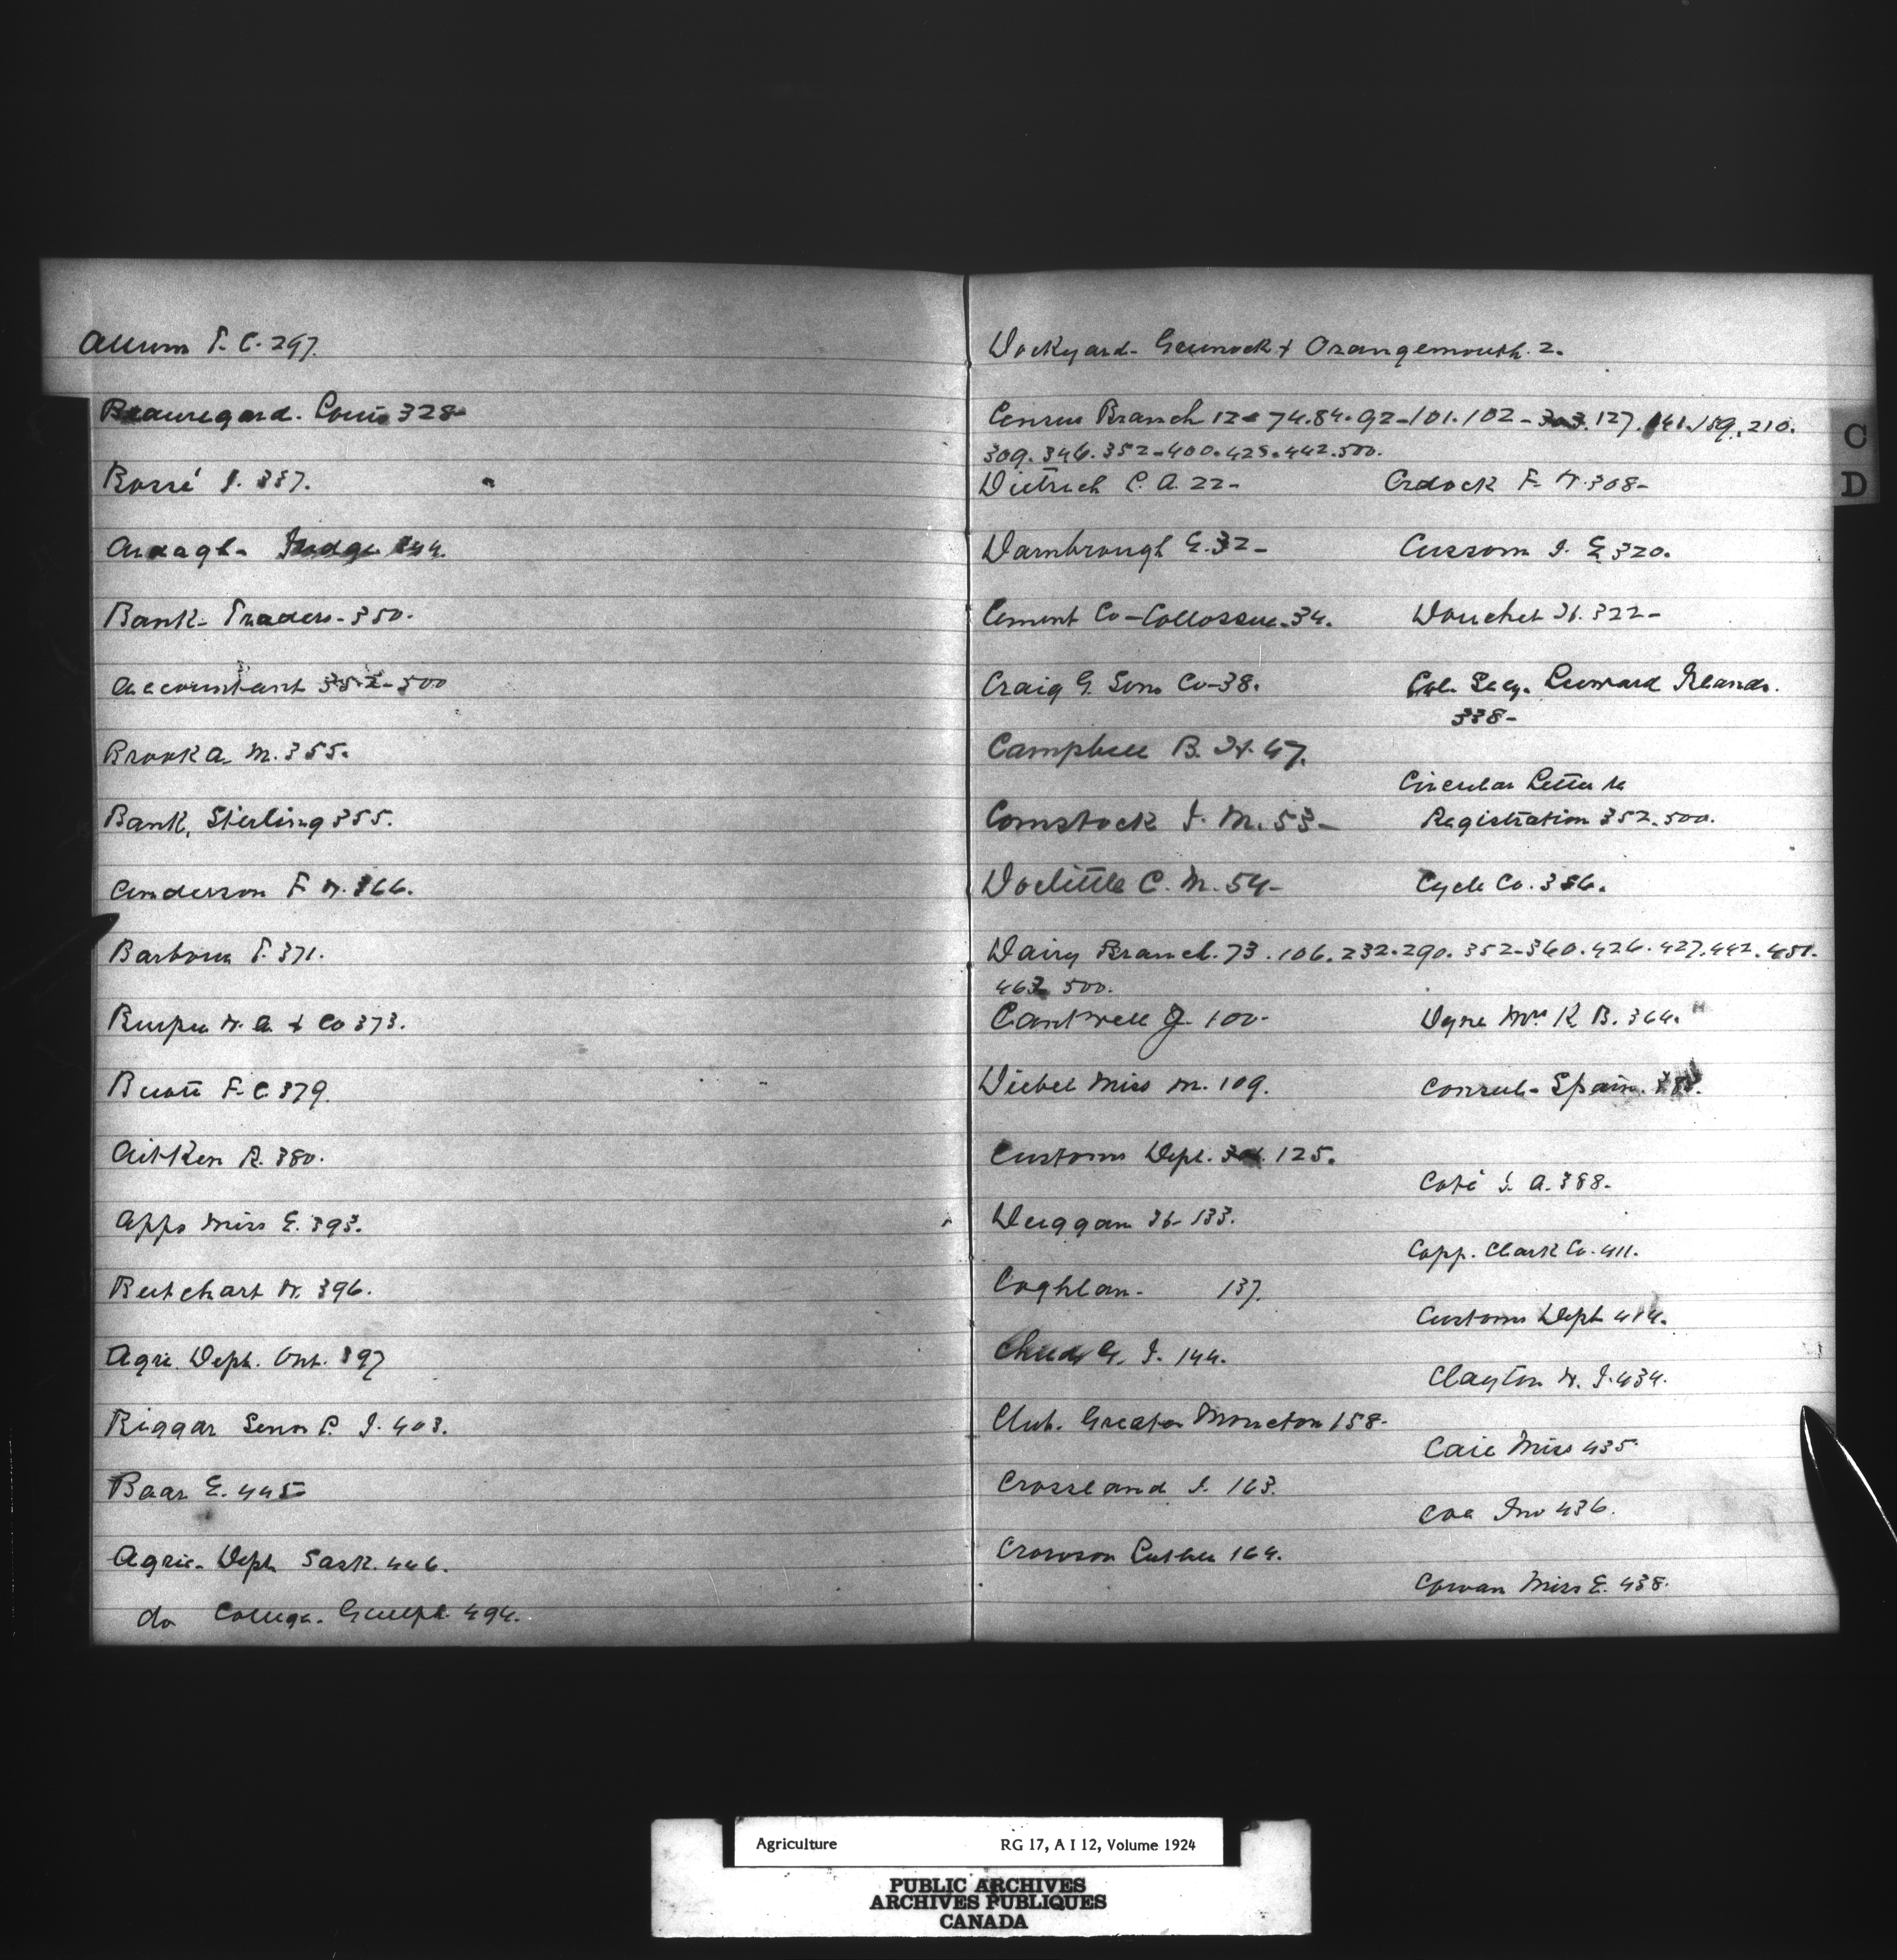 Allum T. C. 297.
Beauregard. Louis 328-
Bossé J. 337.
Ardagh- Judge 344.
Bank- Traders- 350.
Accountant 352-500
Brook A. M. 355.
Bank, Sterling 355.
Anderson F W. 366.
Barbour T. 371.
Burpee W. A. & Co 373.
Buote F. C. 379.
Aitken R. 380.
Apps Miss E. 393.
Butchart W. 396.
Agric. Dept. Ont. 397
Biggar Senor P. J. 403.
Baar E. 445
Agric- Dept Sask. 446.
do College. Guelph 494.
Dockyard- Greenock & Grangemouth. 2.
Census Branch 12- 74. 84. 92-101. 102- 303. 127. 141. 189. 210.
309. 346. 352-400. 425. 442. 500.
Dietrich C. A. 22-
Darnbrough E. 32-
Cement Co-Collossus. 34.
Craig G. Sons Co-38.
Campbell B. H. 47.
Comstock J. M. 53-
Doolittle C. M. 54-
Dairy Branch. 73. 106. 232. 290. 352-360. 426. 427. 442. 451.
463 500.
Cantwell J- 100-
Diebel Miss M. 109.
Customs Dept. 125.
Duggan H- 133.
Coghlan- 137.
G. J. 144.
Club. Greater Moncton 158-
Crossland J. 163.
Crowson Luther 164.
Cradock F. W. 308-
Cussom J. E 320.
Douchet H. 322-
Col. Secy. Leeward Islands.
338-
Circular Letter re
Registration 352. 500.
Cycle Co. 356.
Dyne Mrs K. B. 364.
Consul- Spain.
Coté J. A. 388-
Copp. Clark Co. 411.
Customs Dept 414.
Clayton W. J. 434.
Caie Miss 435.
Coe Jno 436.
Cowan Miss E. 438.
C
D
Agriculture RG 17, A I 12, Volume 1924
PUBLIC ARCHIVES
ARCHIVES PUBLIQUES
CANADA